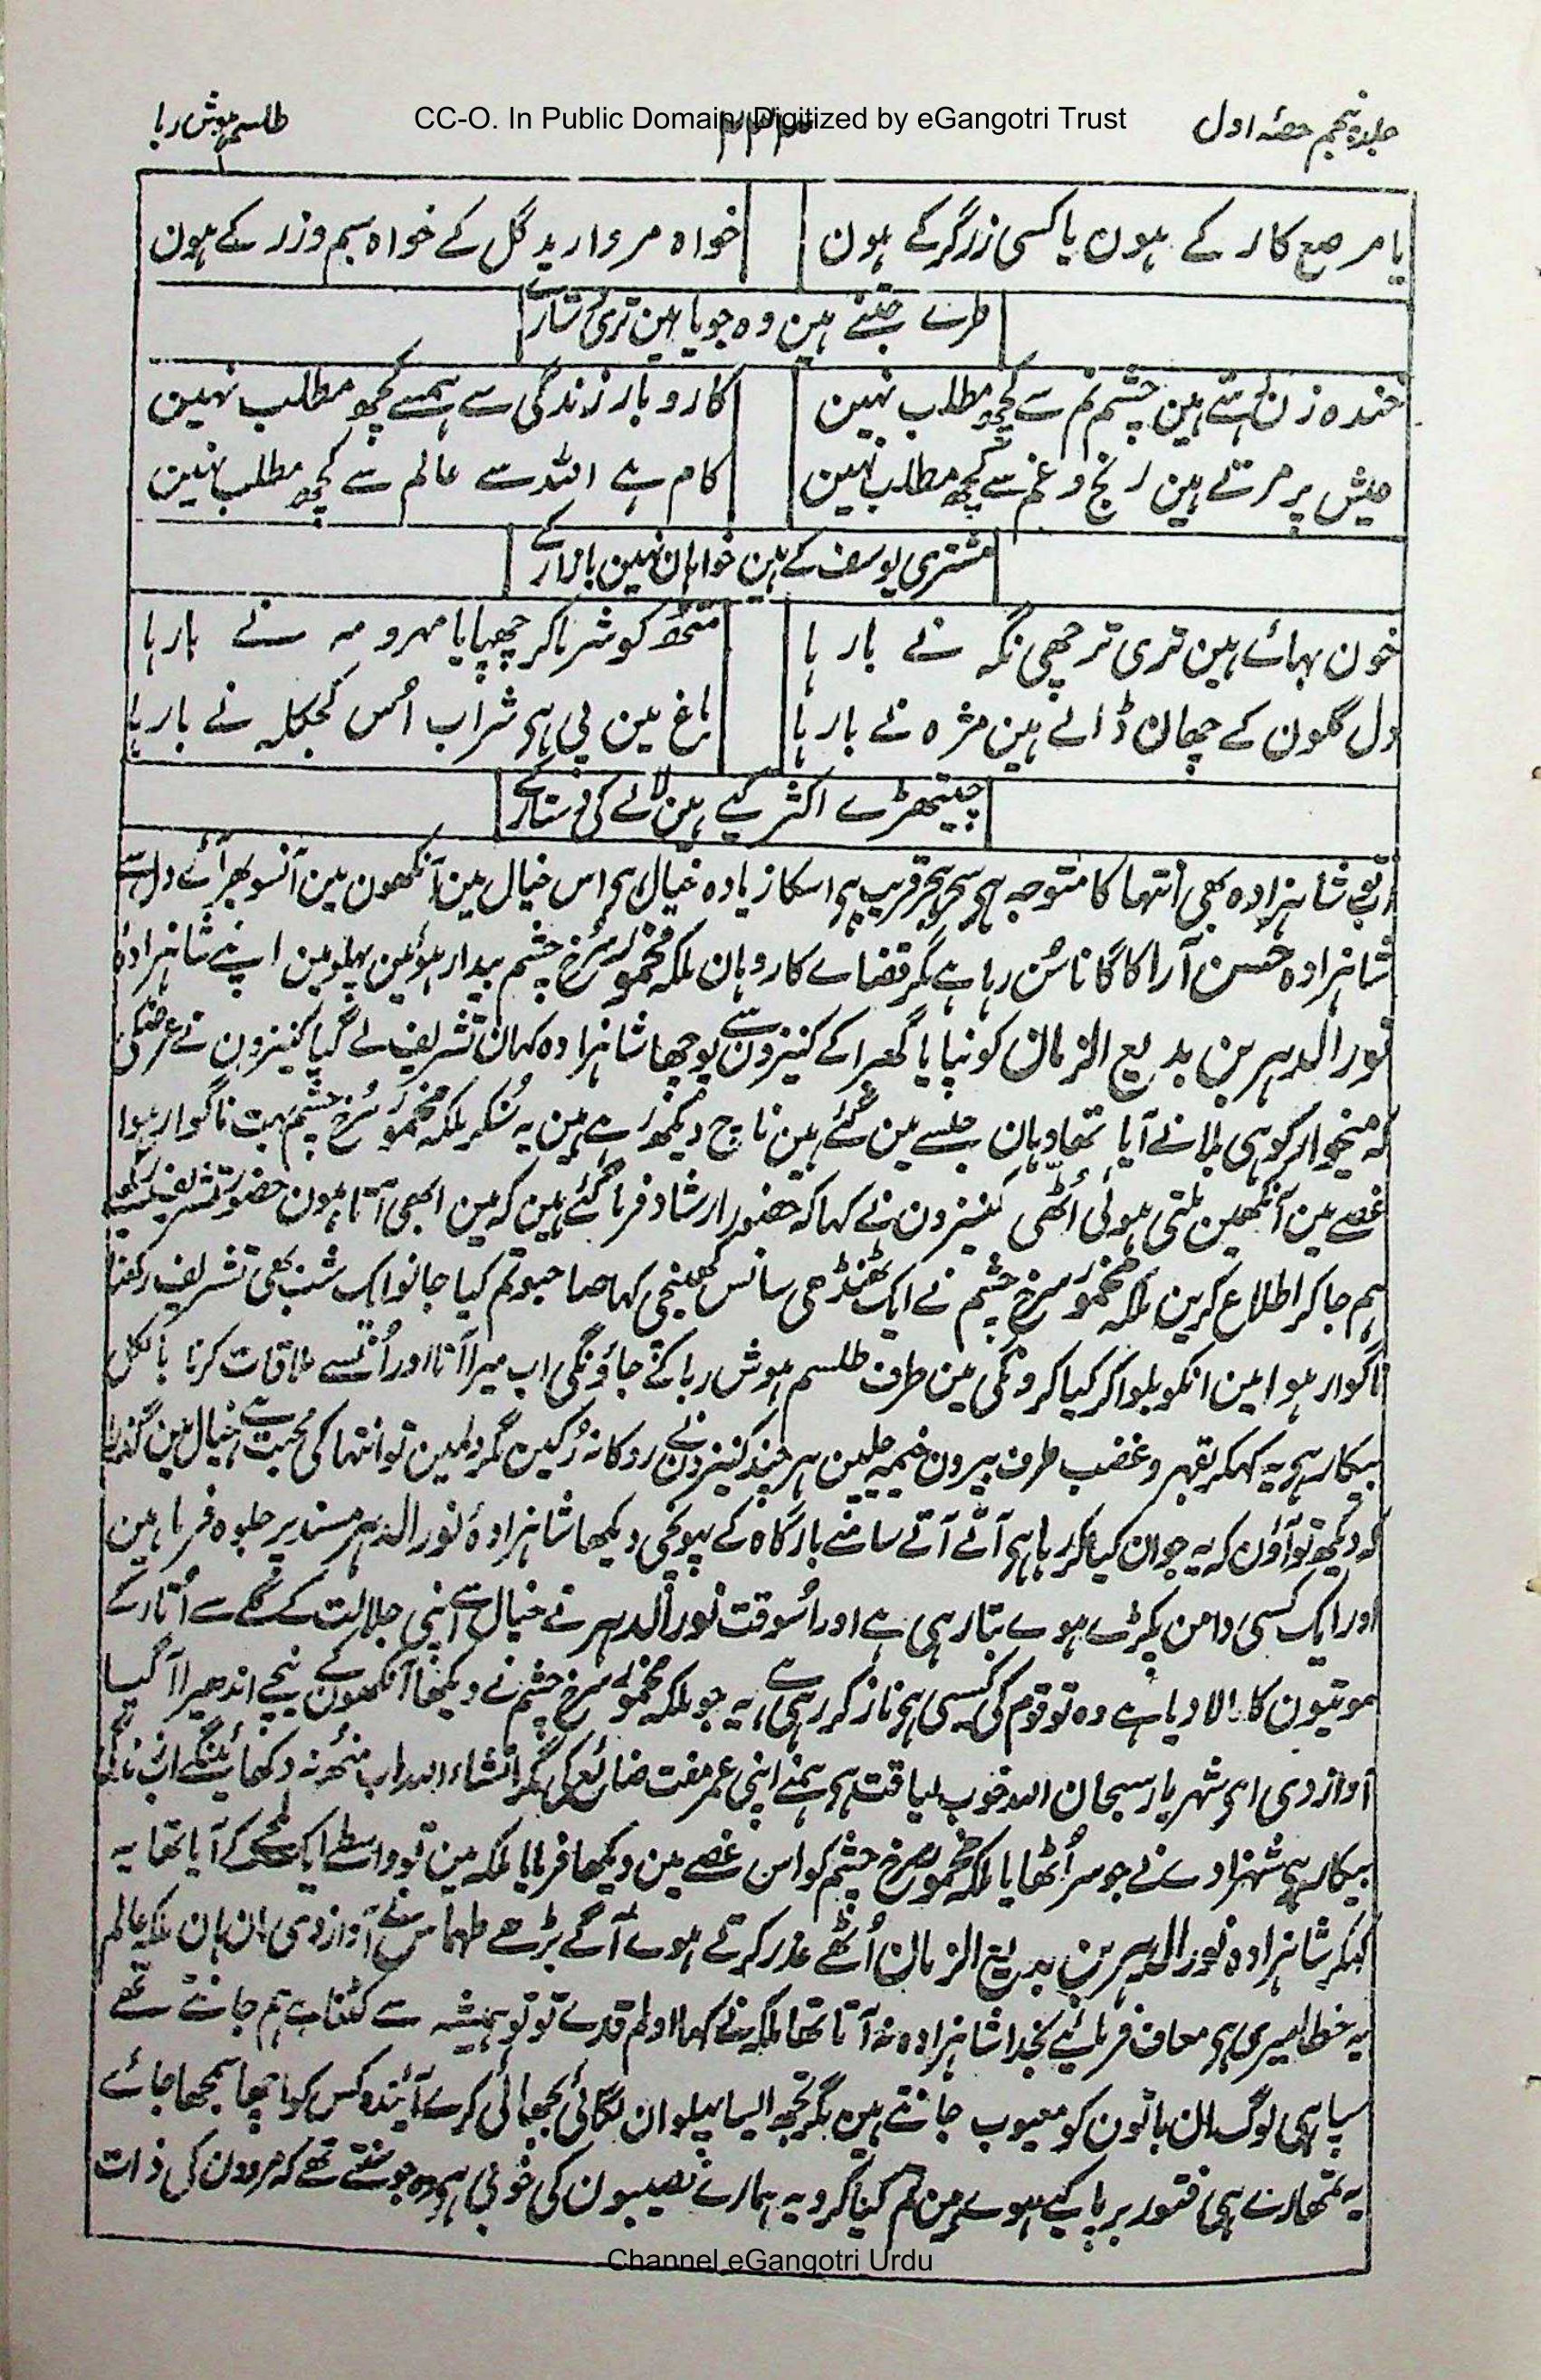 CC-O. In Public Domain. Digitized by eGangotri Trust
جلد پنجم حصّہ اول
۴۴۳
طلسم ہوش ربا
یا مرصع کار کے ہون یا کسی زرگر کے ہون
خواہ مروارید گل کے خواہ سیم وزر کے ہون
طرے جتنے ہین وہ جویا ہین تری دستار کے
خندہ زن رہتے ہین چشم نم سے کچھ مطلب نہین
کاروبار زندگی سے ہمسے کچھ مطلب نہین
عیش پر مرتے ہین رنج و غم سے کچھ مطلب نہین
کام ہے اللہ سے عالم سے کچھ مطلب نہین
مشتری یوسف کے ہین خواہان نہین بازار کے
خون بہائے ہین تری ترچھی نگہ نے بارہا
منھ کو شرما کر چھپایا مہر و مہ نے بارہا
دل گلون کے چھان ڈالے ہین مژہ نے بارہا
باغ مین پی ہی شراب اُس کجکلہ نے بارہا
چیتھڑے اکثر کیے ہین لالے کی دستار کے
شاہزادہ بھی انتہا کا متوجہ ہی سحر قریب ہی اسکا زیادہ خیال ہی اس خیال مین آنکھون مین آنسو بھر آئے دل سے
شاہزادہ حسن آرا کا گانا سُن رہا ہے مگر قضاے کار وہان ملکہ مخمور سُرخ چشم بیدار ہوئین پہلو مین اپنے شاہزادہ
نور الدہر بن بدیع الزمان کو نپایا گھبرا کے کنیزون سے پوچھا شاہزادہ کہان تشریف لے گیا کنیزون نے عرض کی
کہ میخوار کوہی بلانے آیا تھا وہان جلسے مین گئے ہین ناچ دیکھ رہے ہین یہ سُنکر ملکہ مخمور سُرخ چشم بہت ناگوار ہوا
غصے مین آنکھین ملتی ہوئی اُٹھی کنیزون نے کہا کہ حضور ارشاد فرما گئے ہین کہ مین ابھی آتا ہون حضور تشریف رکھیے
ہم جا کر اطلاع کرین ملکہ مخمور سرخ چشم نے ایک ٹھنڈھی سانس کھینچی کہا صاحبو تم کیا جانو ایک شب بھی تشریف رکھنا
ناگوار ہوا مین انکو بلوا کر کیا کرونگی مین طرف طلسم ہوش ربا کے جاؤنگی اب میرا آنا اور اُنسے ملاقات کرنا بالکل
بیکار ہی یہ کہکر بقہر و غضب طرف بیرون خیمہ چلین ہر چند کنیزون نے روکا نہ رُکین مگر دلمین تو انتہا کی محبت ہے خیال مین گذرا
کہ دیکھ تو آؤن کہ یہ جوان کیا کر رہا ہی آتے آتے سامنے بارگاہ کے پہونچی دیکھا شاہزادہ نور الدہر مسند پر جلوہ فرما ہین
اور ایک کسبی دامن پکڑے ہوے بتا رہی ہے اور اُسوقت نور الدہر نے خیال سے اپنی جلالت کے گلے سے اُتار کے
موتیون کا مالا دیا ہے وہ تو قوم کی کسبی ہی ناز کر رہی ہے، یہ جو ملکہ مخمور سرخ چشم نے دیکھا آنکھون کے نیچے اندھیرا آ گیا
آواز دی ای شہریار سبحان اللہ خوب لیاقت ہی ہمنے اپنی عمر مفت ضائع کی مگر انشاء اللہ اب منھ نہ دکھائینگے
بیکار ہی شہزادے نے جو سر اُٹھایا ملکہ مخمور سرخ چشم کو اس غصے مین دیکھا فرمایا ملکہ مین تو واسطے ایک لمحے کے آیا تھا یہ
کہکر شاہزادہ نور الدہر بن بدیع الزمان اُٹھے عذر کرتے ہوے آگے بڑھے طہماس نے آواز دی ہان ہان ملکہ عالم
یہ خطا میری ہی معاف فرمائیے بخدا شاہزادہ نہ آتا تھا ملکہ نے کہا او لم قدے تو تو ہمیشہ سے کٹنا ہے ہم جانتے تھے
سپاہی لوگ ان باتون کو معیوب جانتے ہین مگر تجھ ایسا پہلوان لگائی بجھائی کرے آیندہ کس کو اچھا سمجھا جائے
یہ تمھارے ہی فتور برپا کیے ہوے ہین تم کیا کرو یہ ہمارے نصیبون کی خوبی ہی وہ جو سنتے تھے کہ مردون کی ذات
Channel eGangotri Urdu